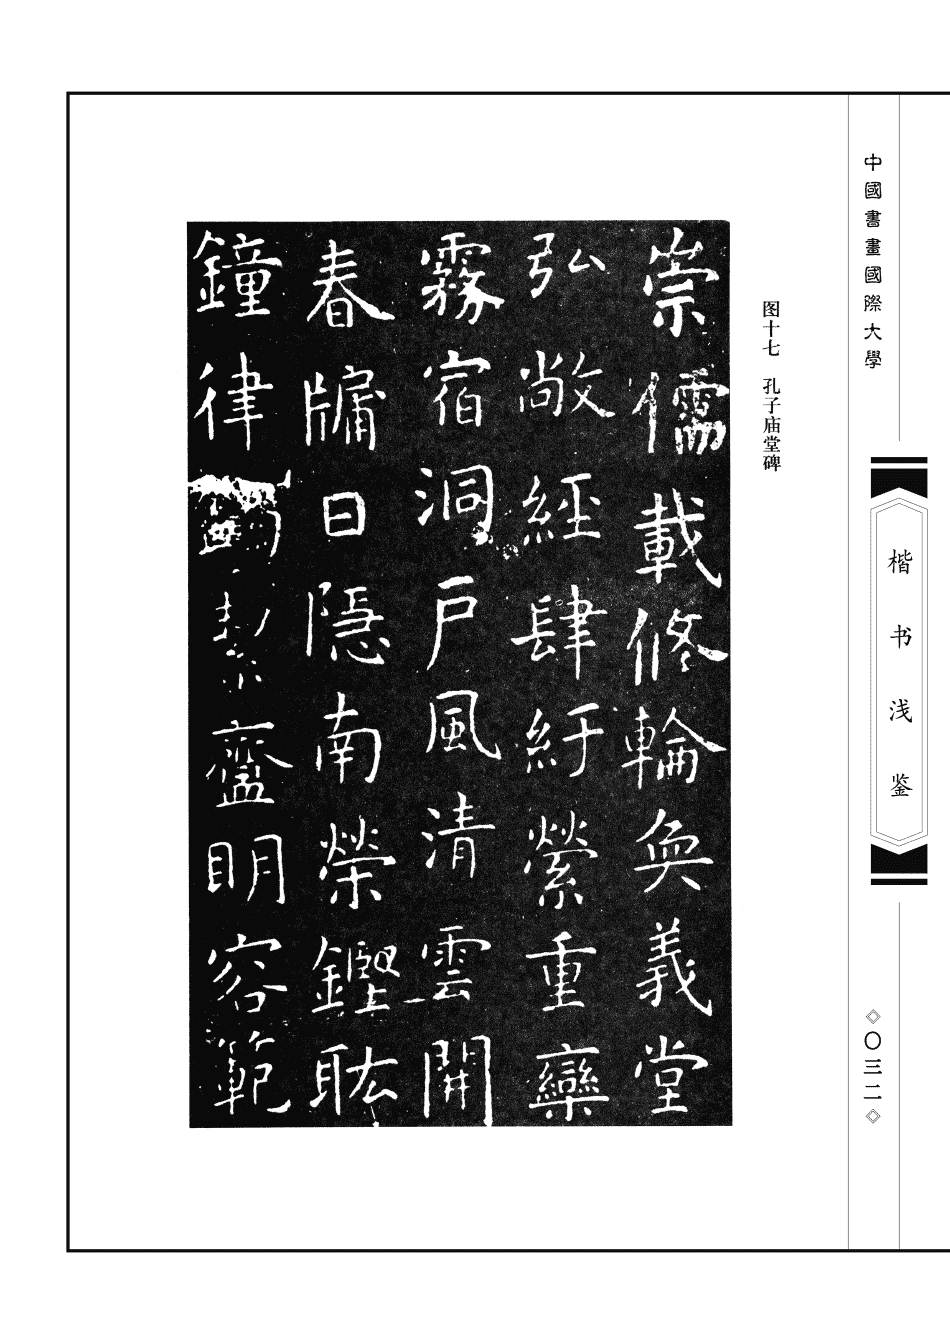 中國書畫國際大學
楷书浅鉴
〇三二
图十七 孔子庙堂碑
崇儒載修輪奐義堂
弘敞經肆紆縈重欒
霧宿洞戶風清雲開
春牖日隱南榮鏗耾
鐘律齍明容範